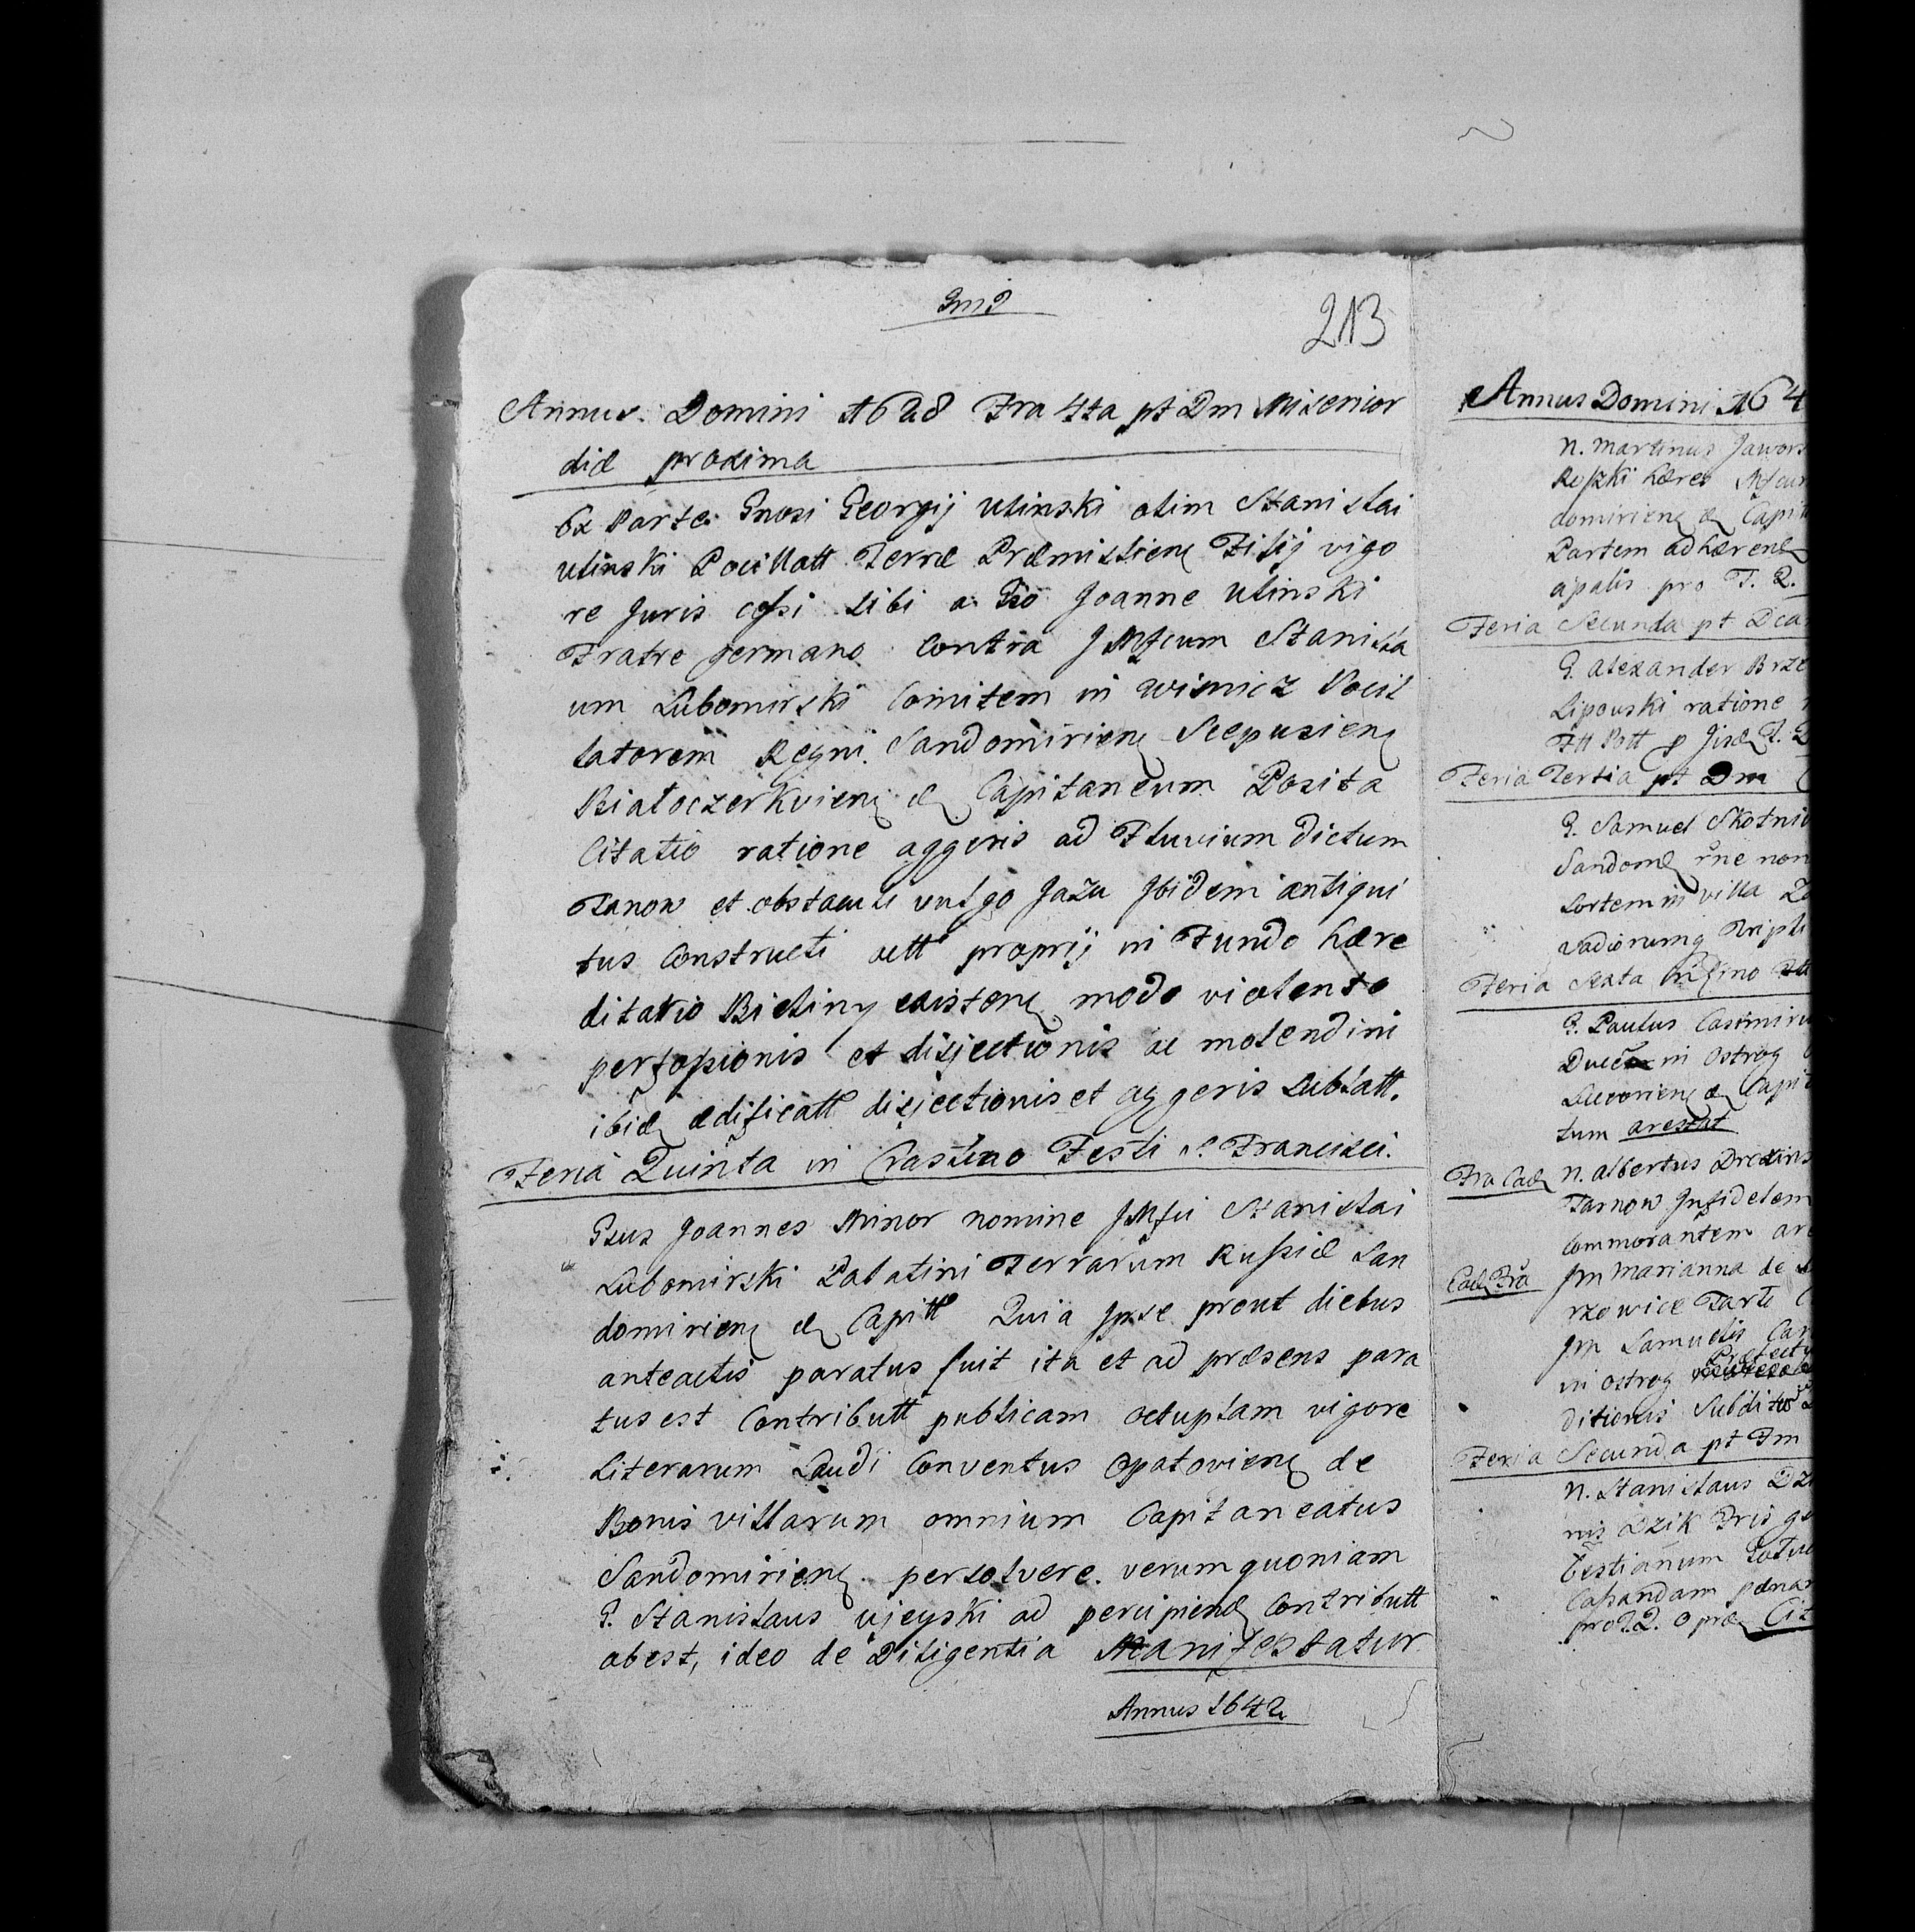 213
Annus Domini 1628 Fra 4ta pt Dm Misericor
diæ proxima
Ex Parte Gnosi Georgij Ulinski olim Stanislai
Ulinski Pocillatt Terræ Præmislien Filij vigo
re Juris cessi sibi a Gso Joanne Ulinski
Fratre germano Contra JMfcum Stanisla
um Lubomirski Comitem in Wisnicz Pocil
latorem Regni Sandomirien Scepusien
Białoczerkvien & Capitaneum Posita
Citatio ratione aggeris ad Fluvium dictum
Tanow et obstaculi vulgo Jazu Jbidem antiqui
tus Constructi ac proprij in Fundo hære
ditario Bieliny existen modo violento
perfossionis et disjectionis ac molendini
ibid ædificatt disjectionis et aggeris Sublatt.
Feria Quinta in Crastino Festi S. Francisci.
Gsus Joannes Minor nomine JMfci Stanislai
Lubomirski Palatini Terrarum Russiæ San
domirien & Capitt Quia Jpse prout diebus
anteactis paratus fuit ita et ad præsens para
tus est Contributt publicam octuplam vigore
Literarum Laudi Conventus Opatovien de
Bonis villarum omnium Capitaneatus
Sandomirien persolvere. verum quoniam
G. Stanislaus Ujeyski ad percipiend Contributt
abest, ideo de Diligentia Manifestatur
Annus 1642
Annus Domini 164
N. Martinus Jawors
hæres
domirien & Capitt
Partem adhæren
apalis pro T. 2.
Feria Secunda pt
G. Alexander Brze
Lipouski ratione
Feria Tertia pt Dm
G. Samuel Skotni
Sandom rne non
Sortem in villa
vadiorumq Tripli
Feria Sexta
G. Paulus Casimiru
in Ostrog
& Capit
tum arestat
Fra Ead N. Albertus
Tarnow Jnfidelem
Commorantem are
Ead Fra Jm Marianna de
Jm Samuelis
in Ostrog
Subditus
Feria Secunda pt Fm
N. Stanislaus Dzi
nis Dzik
Cassandam pænam
pro T. 2.